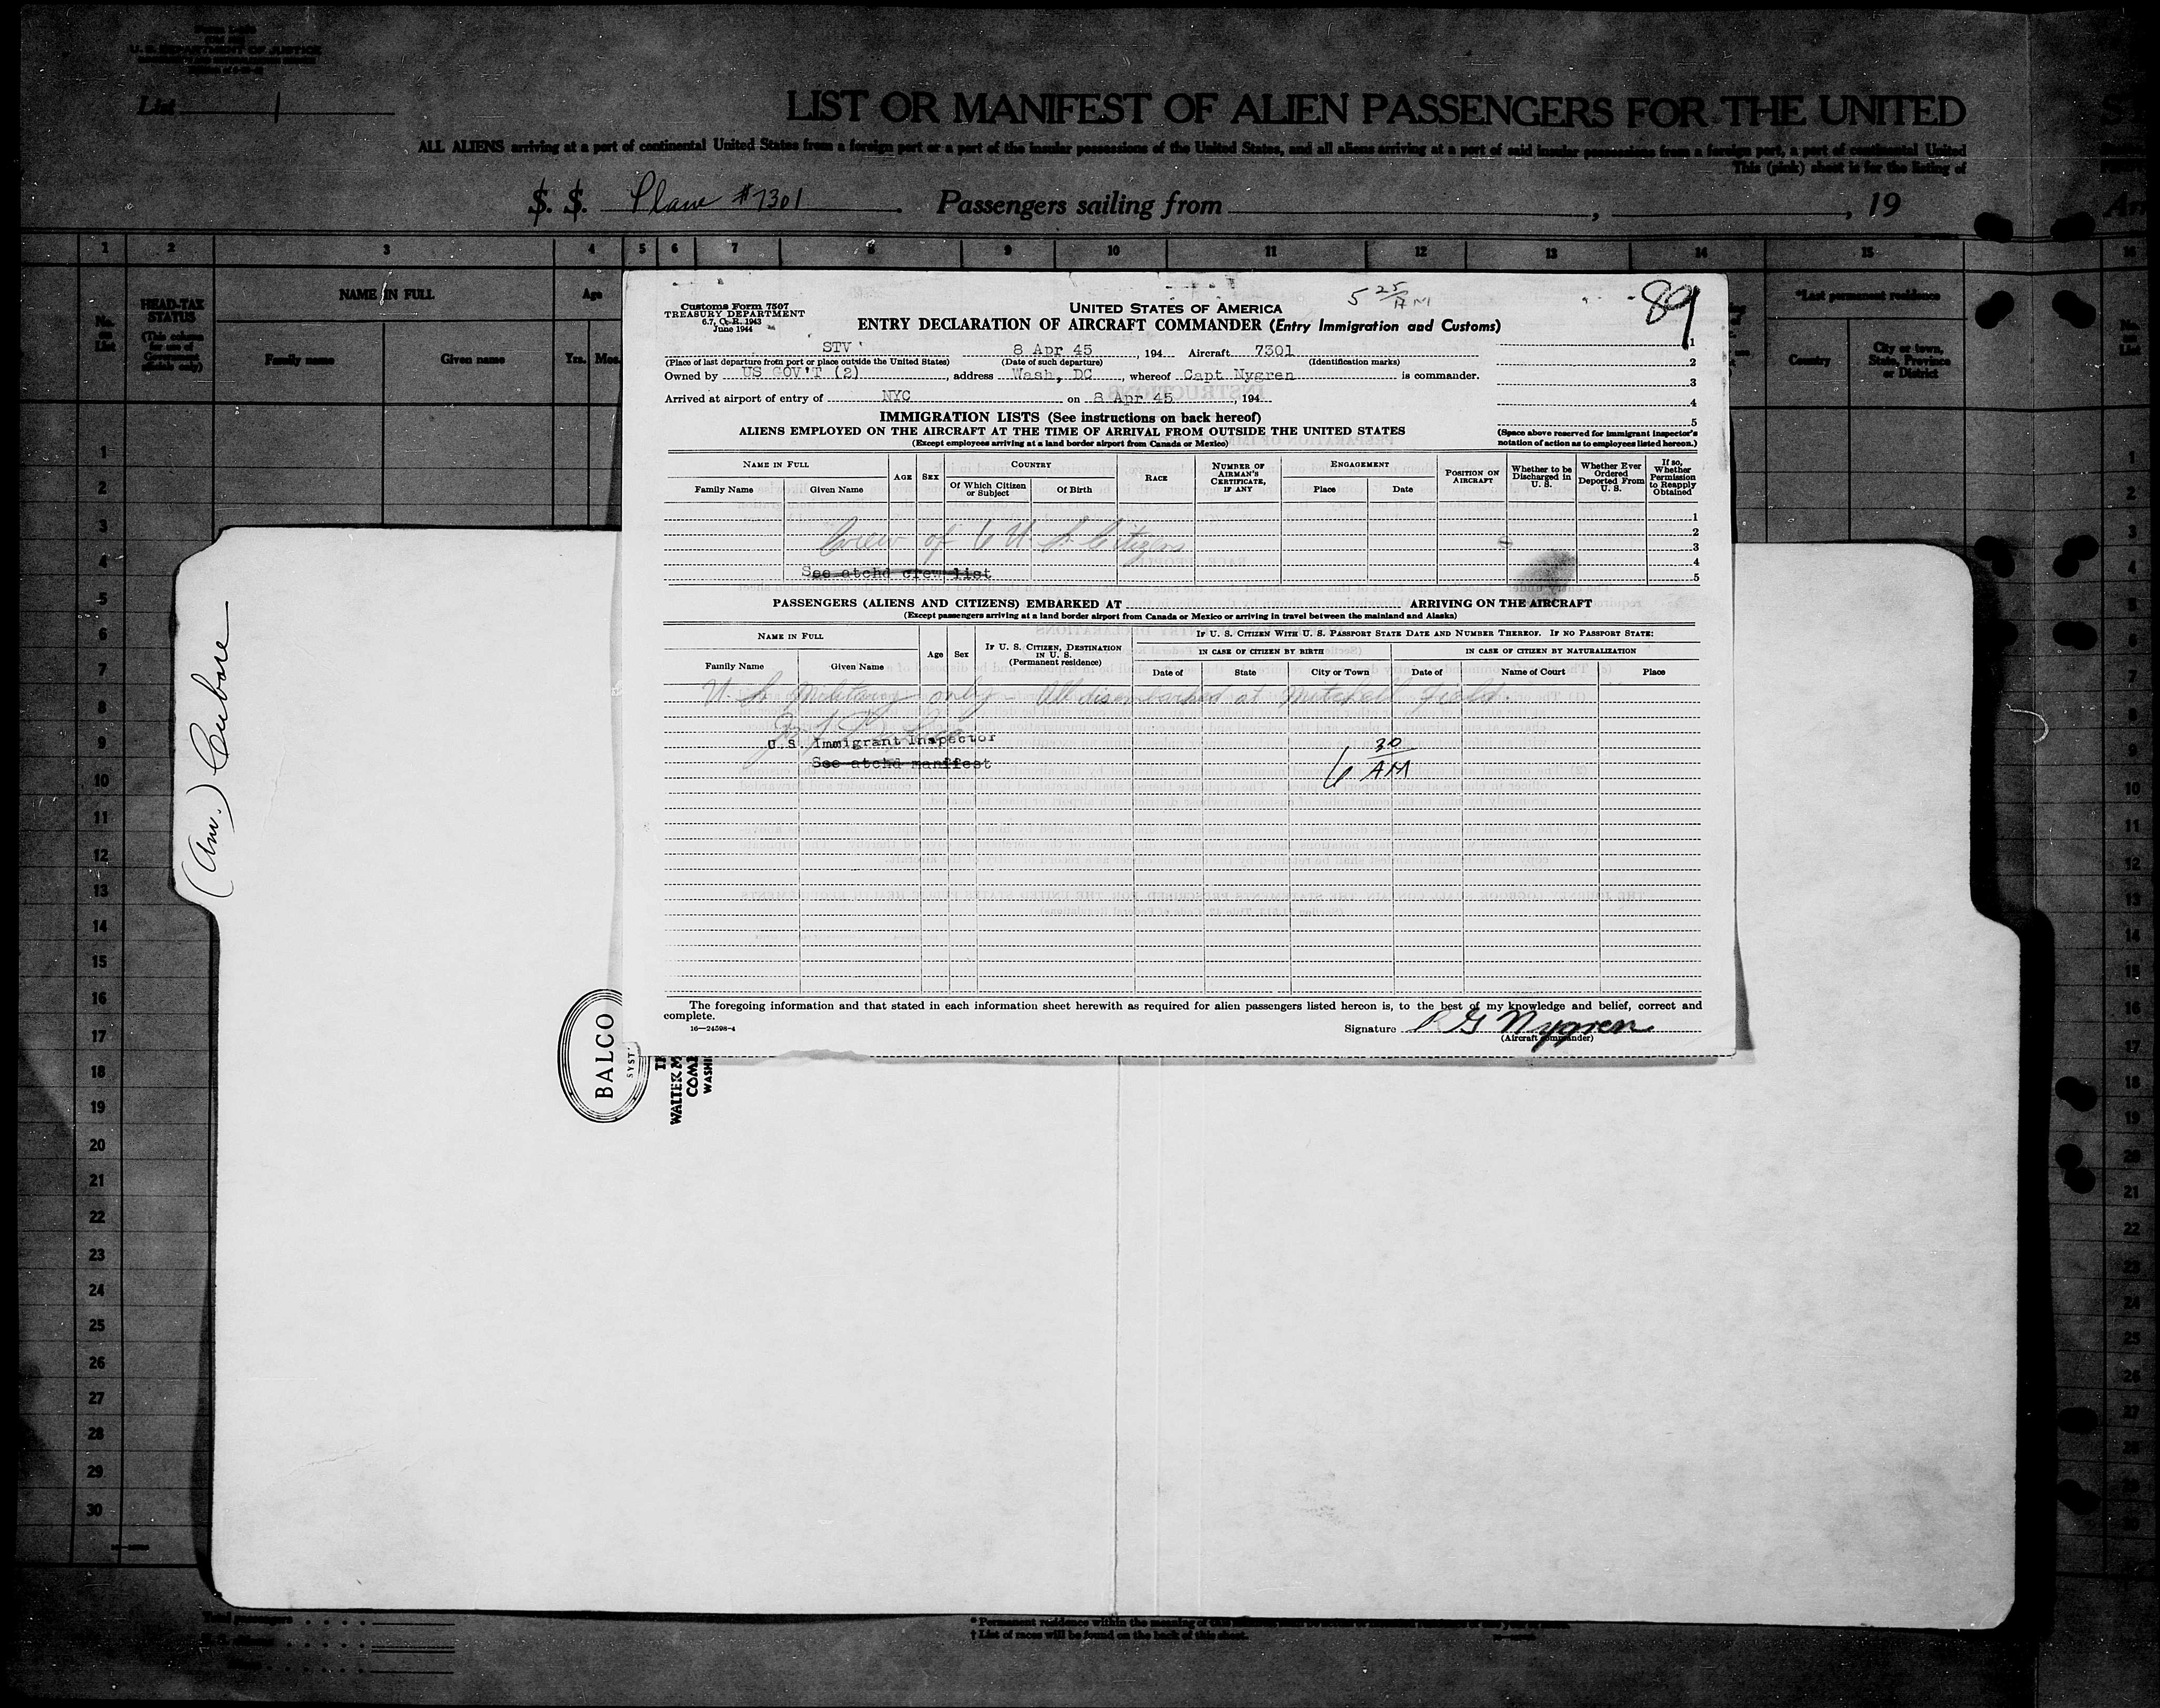 U. S. DEPARTMENT OF JUSTICE
List 1
LIST OR MANIFEST OF ALIEN PASSENGERS FOR THE UNITED
ALL ALIENS arriving at a port of continental United States from a foreign port or a port of the insular possessions of the United States, and all aliens arriving at a port of said insular possessions from a foreign port, a port of continental United
This (pink) sheet is for the listing of
S. S. Plane #7301 Passengers sailing from , , 19
1 2 3 4 5 6 7 8 9 10 11 12 13 14 15 16
No. on List
HEAD-TAX STATUS
(This column for use of Government officials only)
NAME IN FULL
Family name Given name
Age
Yrs. Mos.
*Last permanent residence
Country City or town, State, Province or District
Customs Form 7507
TREASURY DEPARTMENT
6.7, C. R. 1943
June 1944
UNITED STATES OF AMERICA
5 25/AM
89
ENTRY DECLARATION OF AIRCRAFT COMMANDER (Entry Immigration and Customs)
STV 8 Apr 45, 194 Aircraft 7301
(Place of last departure from port or place outside the United States) (Date of such departure) (Identification marks)
Owned by US GOV'T (2), address Wash, DC, whereof Capt Nygren is commander.
Arrived at airport of entry of NYC on 8 Apr 45, 194
1
2
3
4
5
(Space above reserved for immigrant inspector's notation of action as to employees listed hereon.)
IMMIGRATION LISTS (See instructions on back hereof)
ALIENS EMPLOYED ON THE AIRCRAFT AT THE TIME OF ARRIVAL FROM OUTSIDE THE UNITED STATES
(Except employees arriving at a land border airport from Canada or Mexico)
NAME IN FULL AGE SEX COUNTRY RACE NUMBER OF AIRMAN'S CERTIFICATE, IF ANY ENGAGEMENT POSITION ON AIRCRAFT Whether to be Discharged in U. S. Whether Ever Ordered Deported From U. S. If so, Whether Permission to Reapply Obtained
Family Name Given Name Of Which Citizen or Subject Of Birth Place Date
1
2
3
4
5
Crew of 6 U. S. Citizens
See atchd crew list
PASSENGERS (ALIENS AND CITIZENS) EMBARKED AT ARRIVING ON THE AIRCRAFT
(Except passengers arriving at a land border airport from Canada or Mexico or arriving in travel between the mainland and Alaska)
NAME IN FULL Age Sex IF U. S. CITIZEN, DESTINATION IN U. S. (Permanent residence) IF U. S. CITIZEN WITH U. S. PASSPORT STATE DATE AND NUMBER THEREOF. IF NO PASSPORT STATE:
IN CASE OF CITIZEN BY BIRTH IN CASE OF CITIZEN BY NATURALIZATION
Family Name Given Name Date of State City or Town Date of Name of Court Place
U. S. Military only All disembarked at Mitchell Field.
U.S. Immigrant Inspector
See atchd manifest
6 30/AM
The foregoing information and that stated in each information sheet herewith as required for alien passengers listed hereon is, to the best of my knowledge and belief, correct and
complete.
16—24598-4
Signature R G Nygren
(Aircraft commander)
(Am.) Curbore
BALCO
SYST
WALTER M
COM
WASHI
1
2
3
4
5
6
7
8
9
10
11
12
13
14
15
16
17
18
19
20
21
22
23
24
25
26
27
28
29
30
Total passengers
* Permanent residence within the meaning of this
† List of races will be found on the back of this sheet.